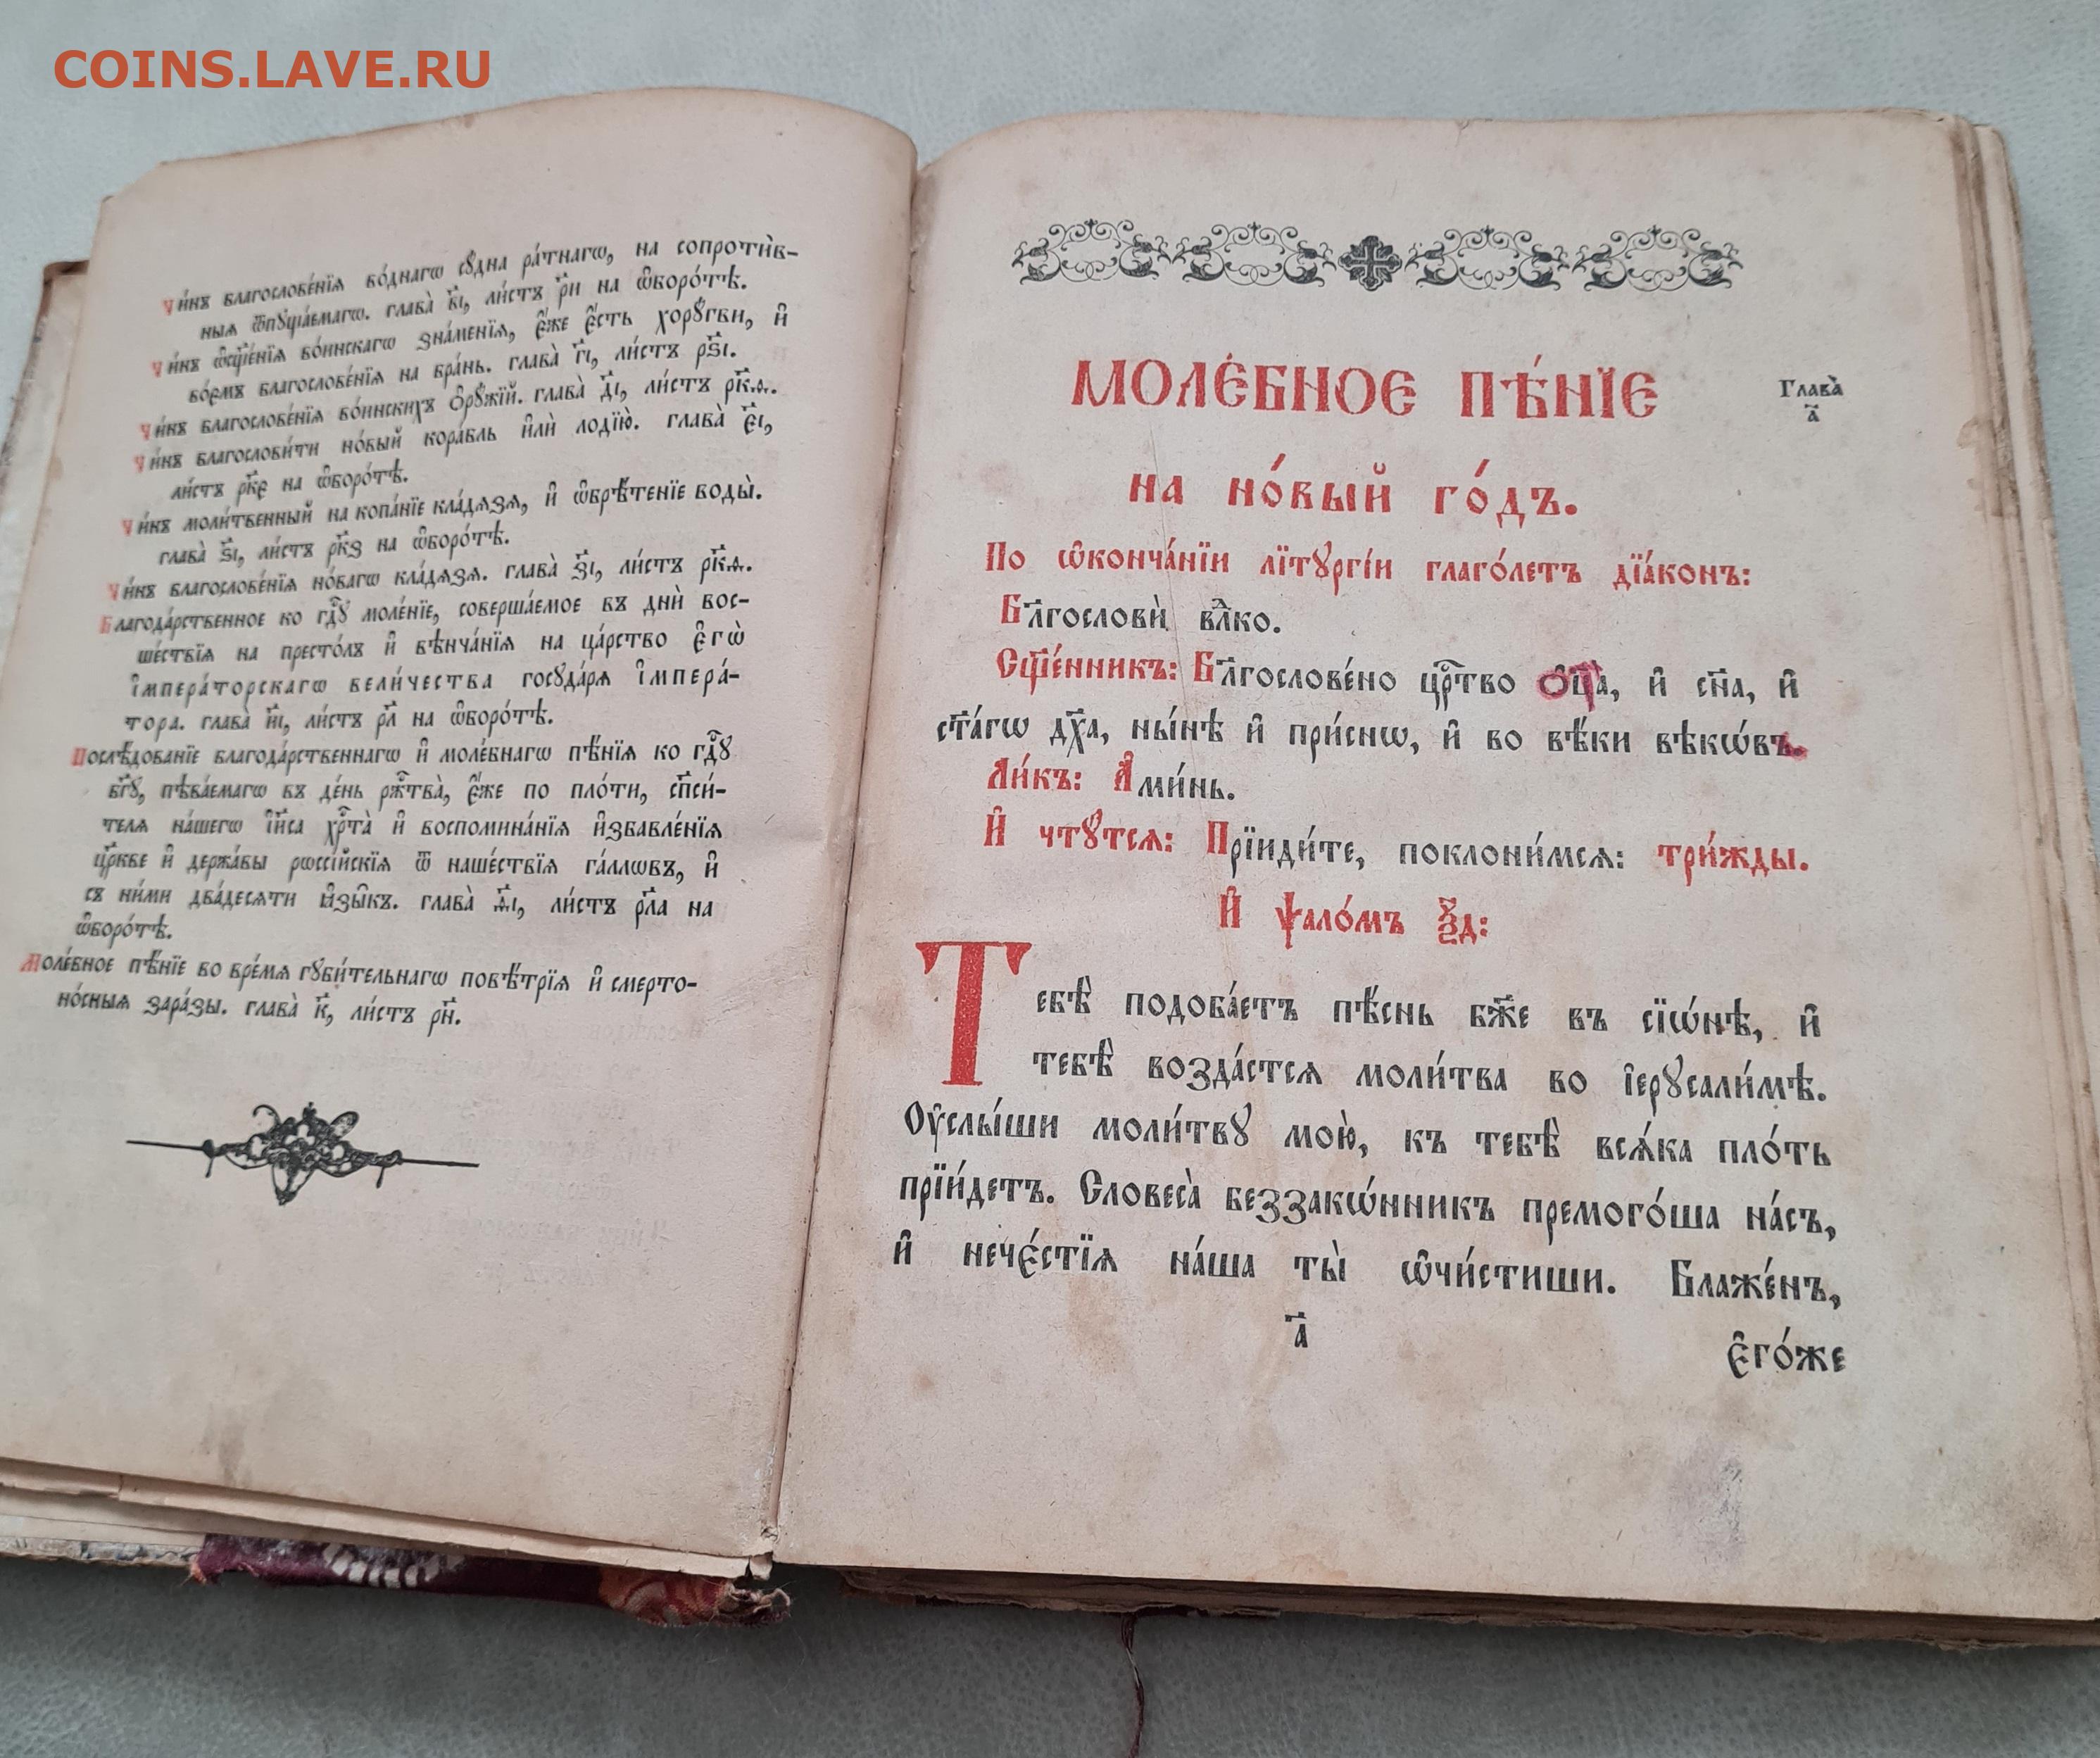 COINS.LAVE.RU
Чи́нъ благослове́нїѧ во́днагѡ сꙋ́дна ра́тнагѡ, на сопроти̑в-
ныѧ ѿпꙋща́емагѡ. глава̀ в҃і, ли́стъ р҃и на ѡ҆боро́тѣ.
Чи́нъ ѡ҆сщ҃е́нїѧ во́инскагѡ зна́менїѧ, є҆́же є҆́сть хорꙋ̑гви, и҆
во́ємъ благослове́нїѧ на бра́нь. глава̀ г҃і, ли́стъ рѕ҃і.
Чи́нъ благослове́нїѧ во́инскихъ ѻ҆рꙋ́жїй. глава̀ д҃і, ли́стъ рк҃ѳ.
Чи́нъ благослови́ти но́вый кора́бль и҆лѝ лодїю̀. глава̀ є҃і,
ли́стъ рк҃є на ѡ҆боро́тѣ.
Чи́нъ моли́твенный на копа́нїе кла́дѧзѧ, и҆ ѡ҆брѣ́тенїе воды̀.
глава̀ ѕ҃і, ли́стъ рк҃з на ѡ҆боро́тѣ.
Чи́нъ благослове́нїѧ но́вагѡ кла́дѧзѧ. глава̀ з҃і, ли́стъ рк҃ѳ.
Благода́рственное ко гдⷭ҇ꙋ моле́нїе, соверша́емое въ днѝ вос-
ше́ствїѧ на престо́лъ и҆ вѣнча́нїѧ на ца́рство є҆гѡ̀
і҆мпера́торскагѡ вели́чества госꙋда́рѧ і҆мпера́-
тора. глава̀ и҃і, ли́стъ рл҃ на ѡ҆боро́тѣ.
Послѣ́дованїе благода́рственнагѡ и҆ моле́бнагѡ пѣ́нїѧ ко гдⷭ҇ꙋ
бг҃ꙋ, пѣва́емагѡ въ де́нь ржⷭ҇тва̀, є҆́же по пло́ти, сп҃си́-
телѧ на́шегѡ і҆и҃са хрⷭ҇та̀ и҆ воспомина́нїѧ и҆збавле́нїѧ
цр҃кве и҆ держа́вы рѡссі́йскїѧ ѿ наше́ствїѧ га́ллѡвъ, и҆
съ ни́ми два́десѧти ꙗ҆зы̑къ. глава̀ ѳ҃і, ли́стъ рл҃а на
ѡ҆боро́тѣ.
Моле́бное пѣ́нїе во вре́мѧ гꙋби́тельнагѡ повѣ́трїѧ и҆ смерто-
но́сныѧ зара́зы. глава̀ к҃, ли́стъ рн҃.
МОЛЕ́БНОЕ ПѢ́НЇЕ
Глава̀
а҃
на но́вый го́дъ.
По ѡ҆конча́нїи лїтꙋргі́и глаго́летъ дїа́конъ:
Бл҃гословѝ влⷣко.
Сщ҃е́нникъ: Бл҃гослове́но црⷭ҇тво ѻ҆ц҃а̀, и҆ сн҃а, и҆
ст҃а́гѡ дх҃а, ны́нѣ и҆ при́снѡ, и҆ во вѣ́ки вѣкѡ́въ.
Ли́къ: А҆ми́нь.
И҆ чтꙋ́тсѧ: Прїиди́те, поклони́мсѧ: три́жды.
И҆ ѱало́мъ ѯ҃д:
Тебѣ̀ подоба́етъ пѣ́снь бж҃е въ сїѡ́нѣ, и҆
тебѣ̀ возда́стсѧ моли́тва во і҆ерꙋсали́мѣ.
Оу҆слы́ши моли́твꙋ мою̀, къ тебѣ̀ всѧ́ка пло́ть
прїи́детъ. Словеса̀ беззакѡ́нникъ премого́ша на́съ,
и҆ нече́стїѧ на́ша ты̀ ѡ҆чи́стиши. Блаже́нъ,
а҃
є҆го́же